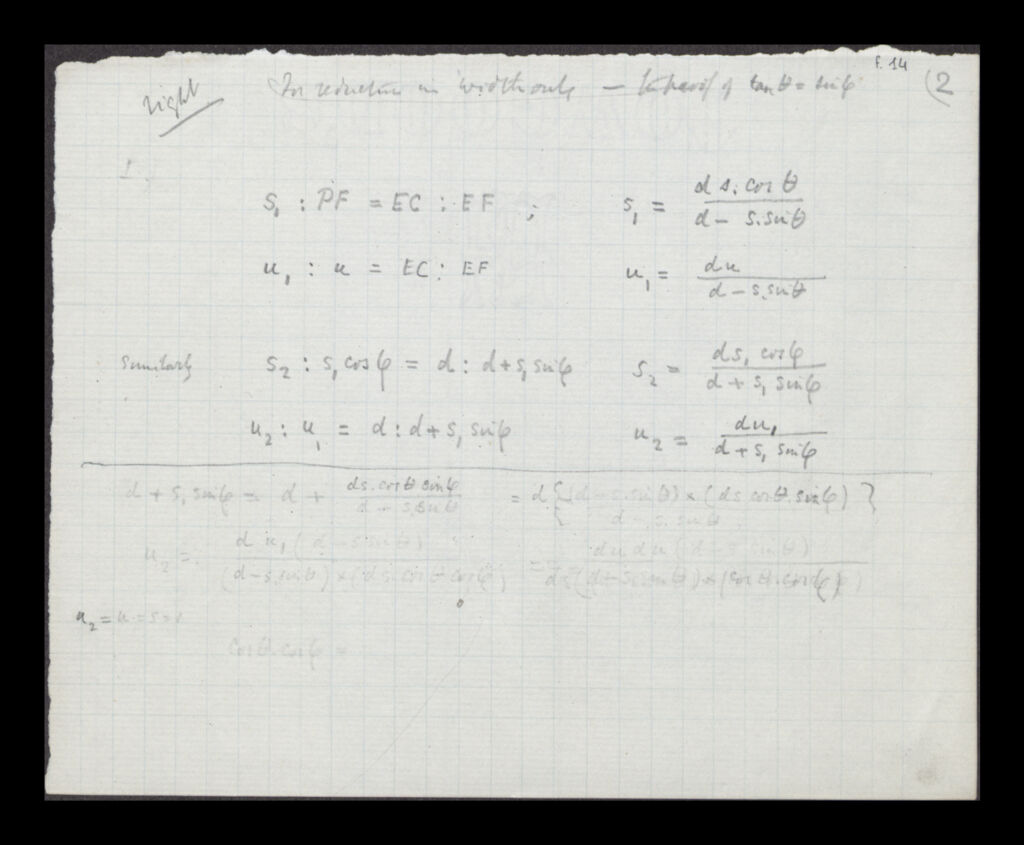 f. 14
(2
right
For reduction in width only — proof of tan θ = sin φ
I.
S₁ : PF = EC : EF ; s₁ = d s. cos θ / d – s. sin θ
u₁ : u = EC : EF u₁ = du / d – s. sin θ
Similarly s₂ : s₁ cos φ = d : d + s₁ sin φ s₂ = ds₁ cos φ / d + s₁ sin φ
u₂ : u₁ = d : d + s₁ sin φ u₂ = du₁ / d + s₁ sin φ
d + s₁ sin φ = d + ds. cos θ sin φ / d – s. sin θ = d { (d – s. sin θ) × (ds cos θ. sin φ) / d – s. sin θ }
u₂ = d u₁ (d – s sin θ) / (d – s. sin θ) × (ds. cos θ cos φ) =
u₂ = u = s =
cos θ cos φ =